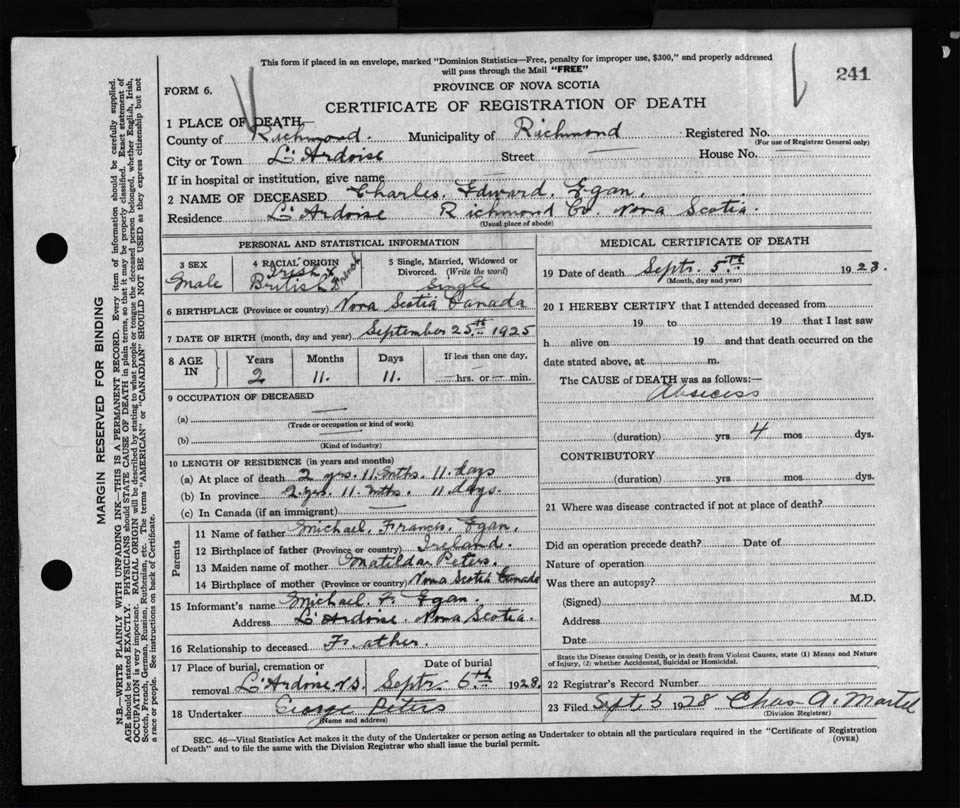 This form if placed in an envelope, marked "Dominion Statistics—Free, penalty for improper use, $300," and properly addressed
will pass through the Mail "FREE"
241
FORM 6.
PROVINCE OF NOVA SCOTIA
CERTIFICATE OF REGISTRATION OF DEATH
1 PLACE OF DEATH—
County of Richmond. Municipality of Richmond Registered No.
(For use of Registrar General only)
City or Town L'Ardoise Street — House No. —
If in hospital or institution, give name —
2 NAME OF DECEASED Charles, Edward, Egan,
Residence L'Ardoise Richmond Co. Nova Scotia.
(Usual place of abode)
PERSONAL AND STATISTICAL INFORMATION
3 SEX
Male
4 RACIAL ORIGIN
Irish &
British French
5 Single, Married, Widowed or
Divorced. (Write the word)
Single
6 BIRTHPLACE (Province or country) Nova Scotia Canada
7 DATE OF BIRTH (month, day and year) September 25th 1925
8 AGE IN
Years Months Days If less than one day,
2 11. 11. — hrs. or — min.
9 OCCUPATION OF DECEASED
(a) —
(Trade or occupation or kind of work)
(b) —
(Kind of industry)
10 LENGTH OF RESIDENCE (in years and months)
(a) At place of death 2 yrs. 11 mths. 11. days
(b) In province 2 yrs. 11 mths. 11 days.
(c) In Canada (if an immigrant) —
Parents
11 Name of father Michael, Francis, Egan,
12 Birthplace of father (Province or country) Ireland.
13 Maiden name of mother Matilda Peters.
14 Birthplace of mother (Province or country) Nova Scotia Canada
15 Informant's name Michael F. Egan.
Address L'Ardoise. Nova Scotia.
16 Relationship to deceased Father.
17 Place of burial, cremation or Date of burial
removal L'Ardoise N.S. Septr. 6th 1928.
18 Undertaker George Peters
(Name and address)
MEDICAL CERTIFICATE OF DEATH
19 Date of death Septr. 5th 1928.
(Month, day and year)
20 I HEREBY CERTIFY that I attended deceased from
19 to 19 that I last saw
h alive on 19 and that death occurred on the
date stated above, at m.
The CAUSE of DEATH was as follows:—
Absecess
(duration) yrs 4 mos dys.
CONTRIBUTORY
(duration) yrs mos dys.
21 Where was disease contracted if not at place of death?
Did an operation precede death? Date of
Nature of operation
Was there an autopsy?
(Signed) M.D.
Address
Date
State the Disease causing Death, or in death from Violent Causes, state (1) Means and Nature
of Injury, (2) whether Accidental, Suicidal or Homicidal.
22 Registrar's Record Number
23 Filed Sept. 5 1928 Chas A. Martel
(Division Registrar)
SEC. 46—Vital Statistics Act makes it the duty of the Undertaker or person acting as Undertaker to obtain all the particulars required in the "Certificate of Registration
of Death" and to file the same with the Division Registrar who shall issue the burial permit.
(OVER)
MARGIN RESERVED FOR BINDING
N.B.—WRITE PLAINLY WITH UNFADING INK—THIS IS A PERMANENT RECORD. Every item of information should be carefully supplied.
AGE should be stated EXACTLY. PHYSICIANS should STATE CAUSE OF DEATH in plain terms, so that it may be properly classified. Exact statement of
OCCUPATION is very important. RACIAL ORIGIN will be described by stating to what people or tongue the deceased person belonged, whether English, Irish,
Scotch, French, German, Russian, Ruthenian, etc. The terms "AMERICAN" or "CANADIAN" SHOULD NOT BE USED as they express citizenship but not
a race or people. See instructions on back of Certificate.